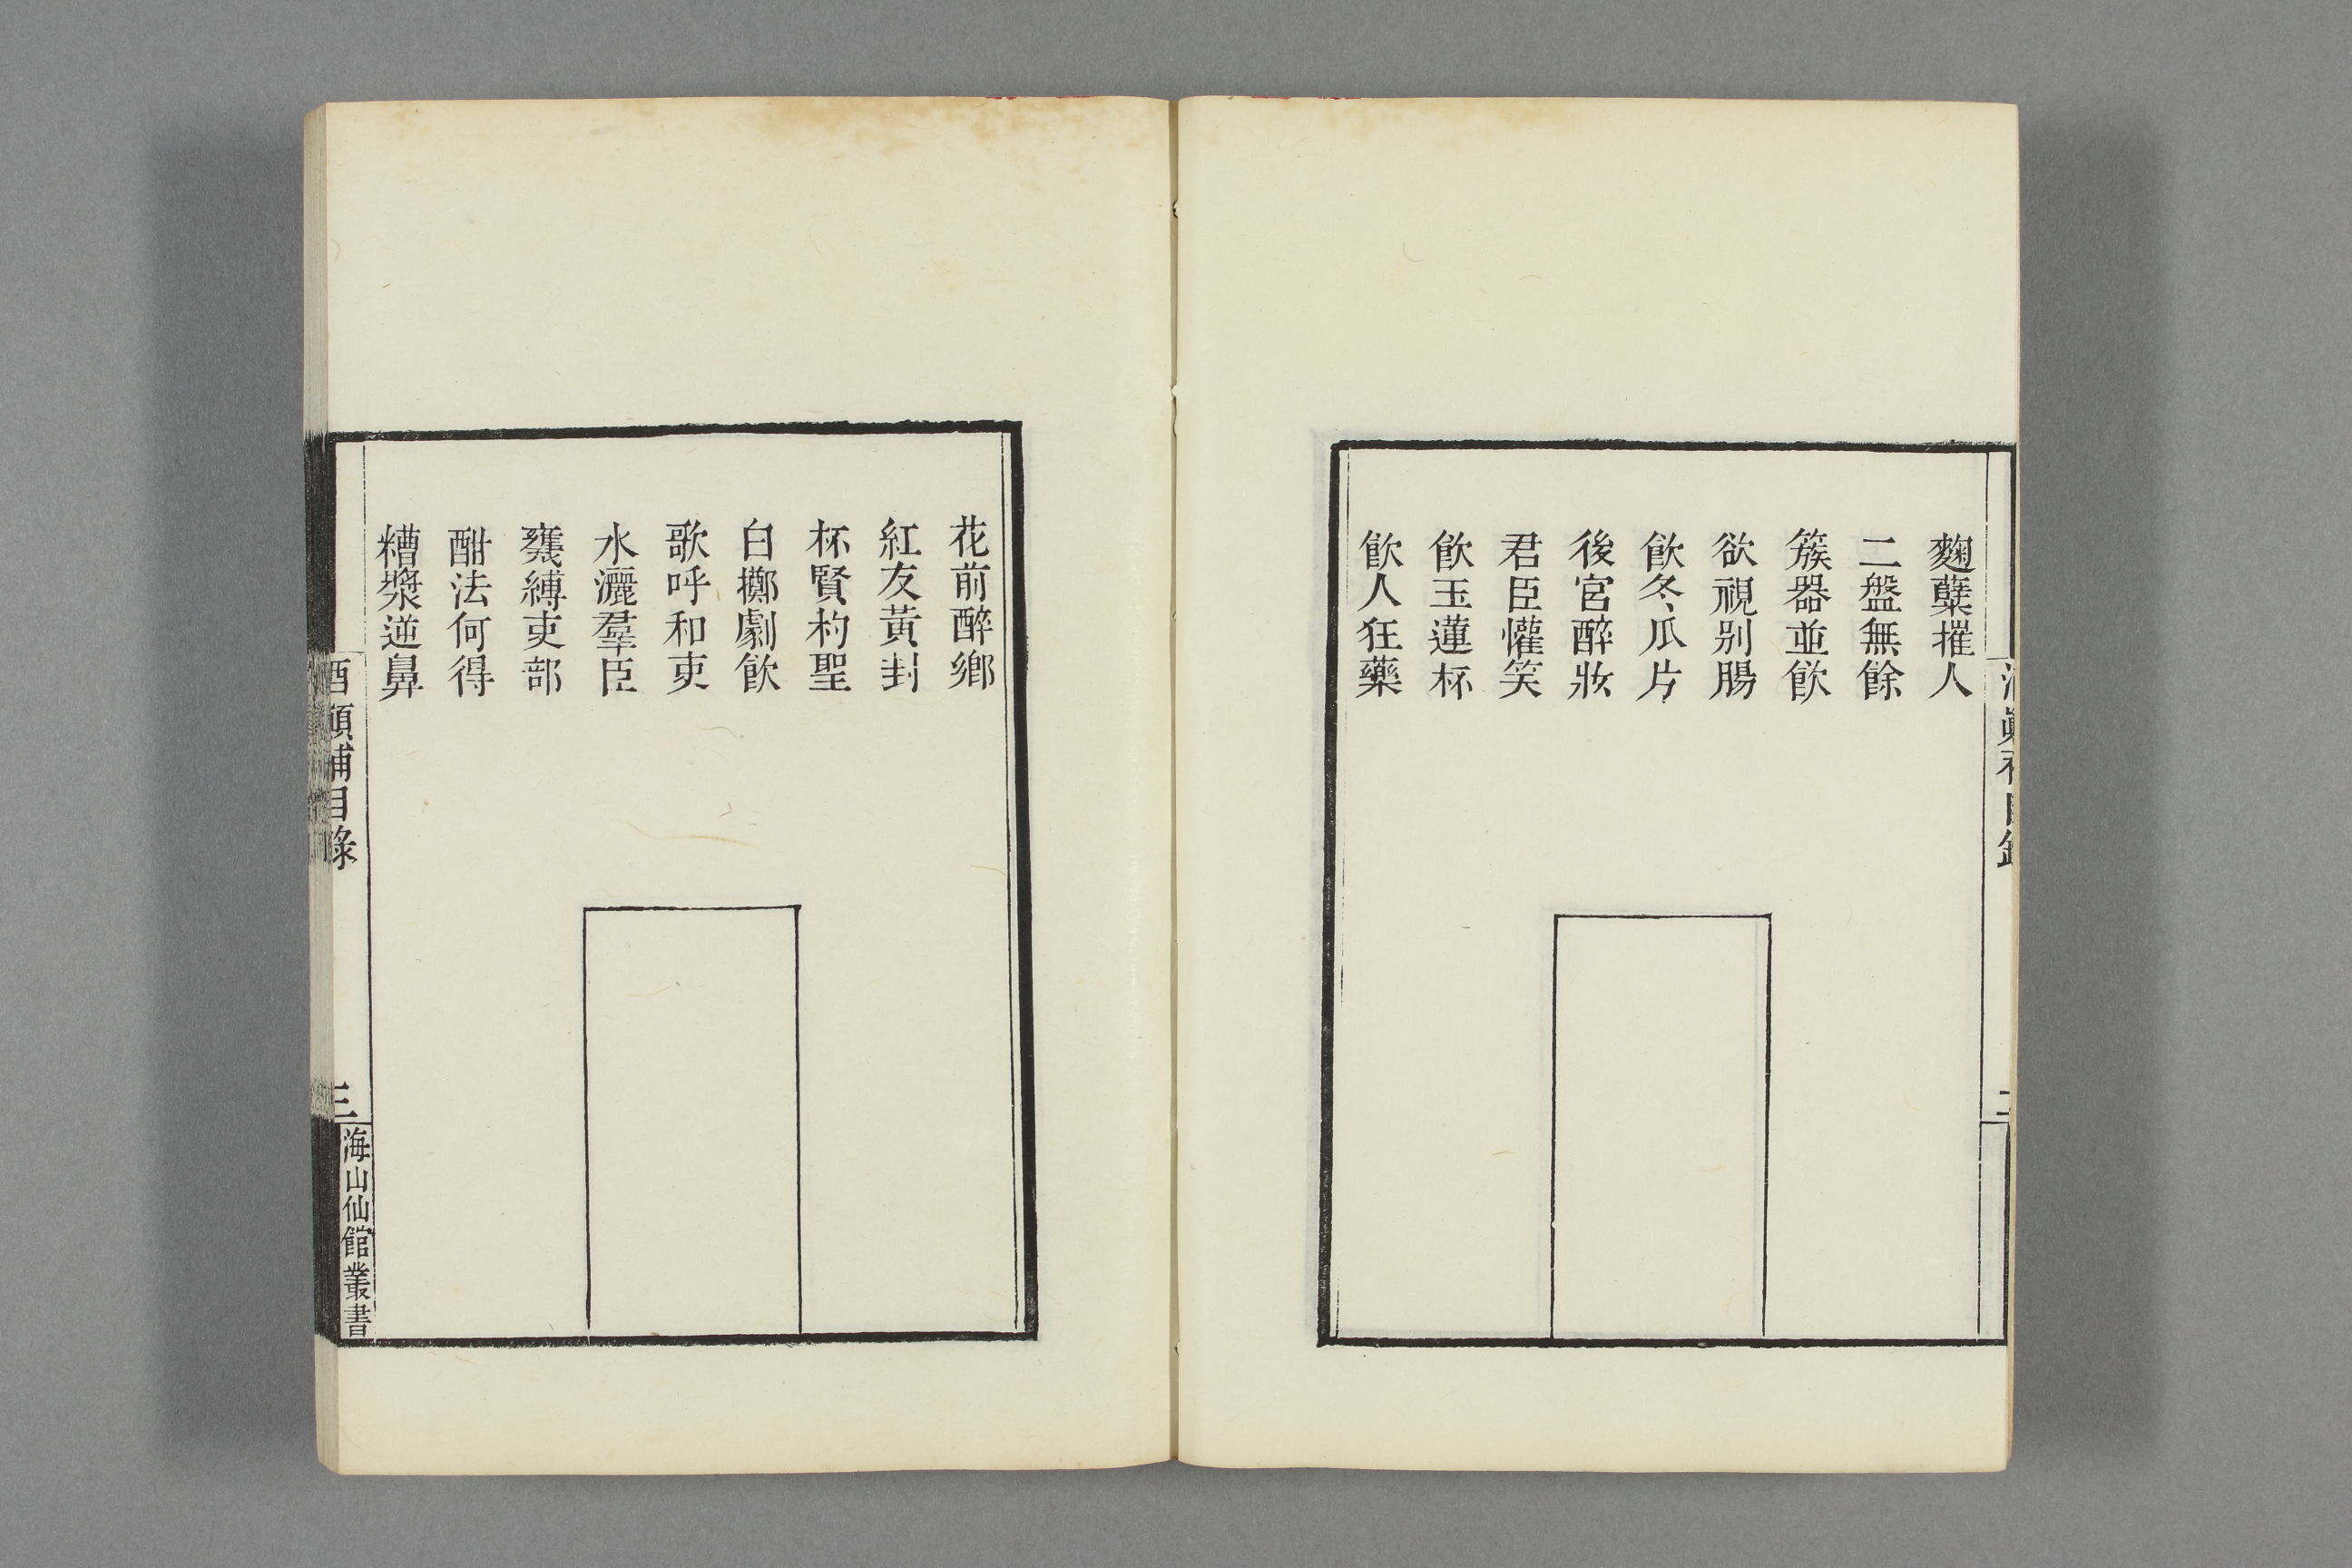 麴櫱摧人
二盤無餘
簇器並飲
欲視别腸
飲冬瓜片
後宮醉妝
君臣懽笑
飲玉蓮杯
飲人狂藥
花前醉鄉
紅友黃封
杯賢杓聖
白擲劇飲
歌呼和吏
水灑羣臣
甕縛吏部
酣法何得
糟漿逆鼻
酒顛補目錄
三
海山仙館叢書